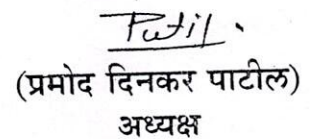 Patil.
(प्रमोद दिनकर पाटील)
अध्यक्ष